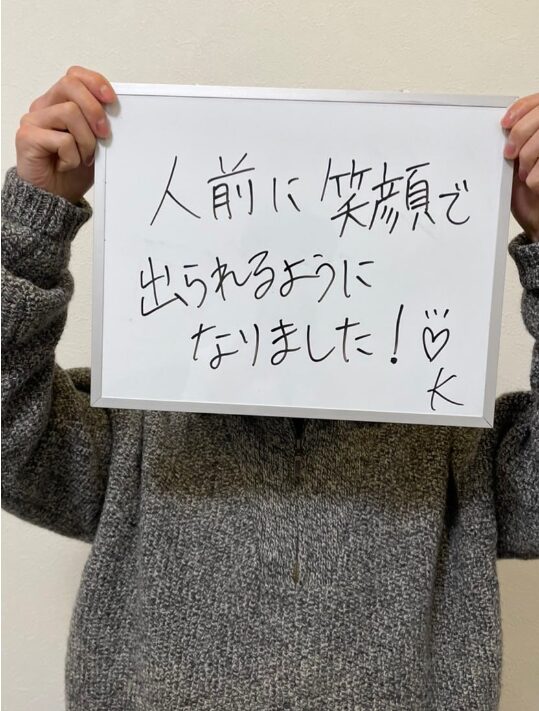 人前に笑顔で
出られるように
なりました!♡
K